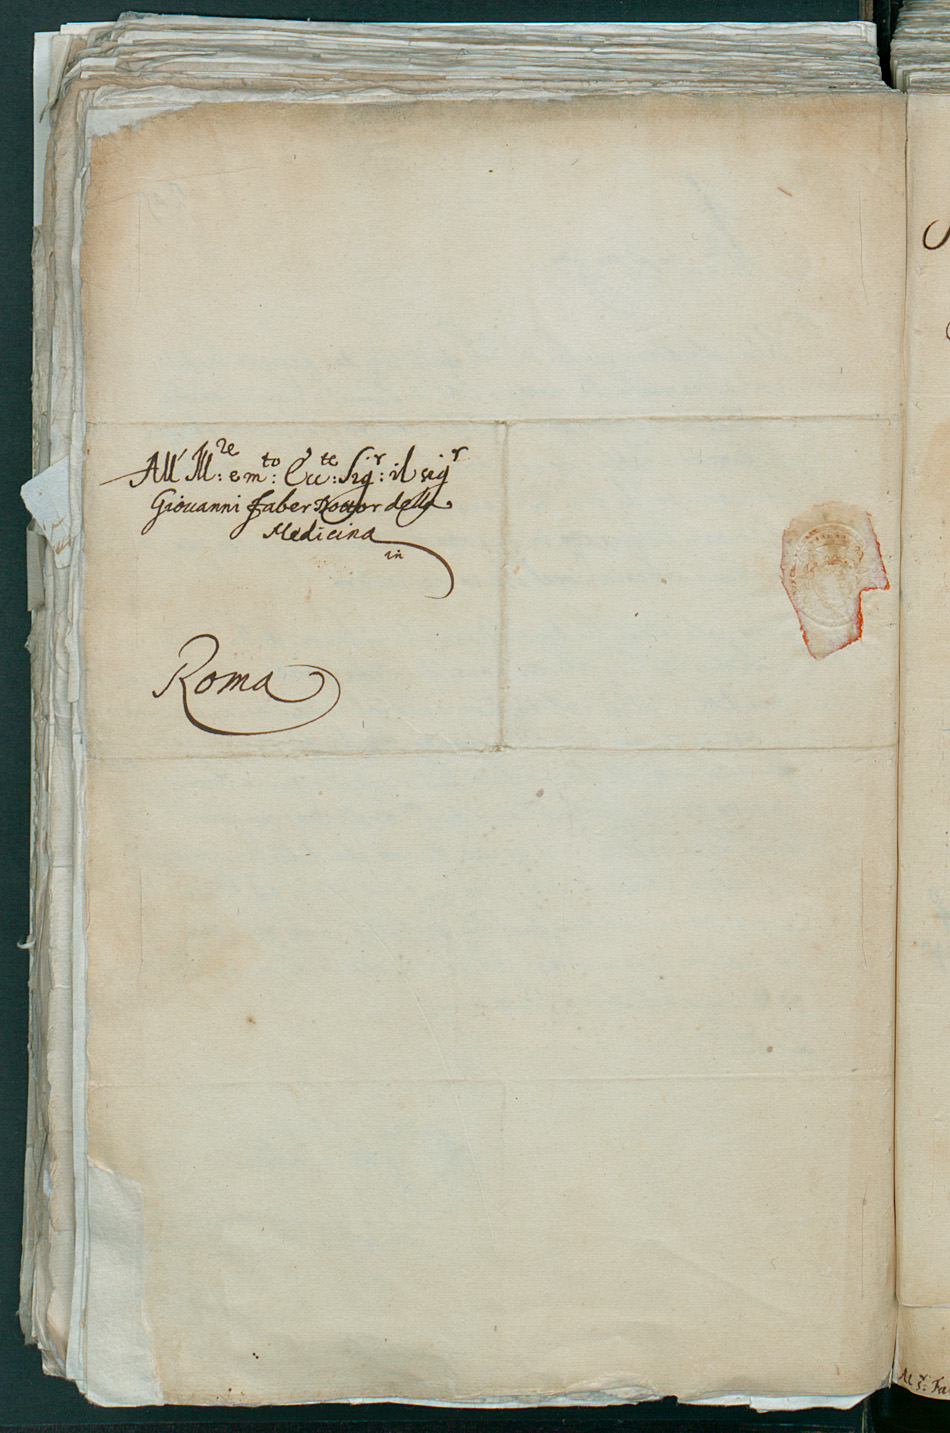 All' Ill:re e m:to Ecc:te Sig:r il sigr
Giouanni Faber Dottor della
Medicina
in
Roma